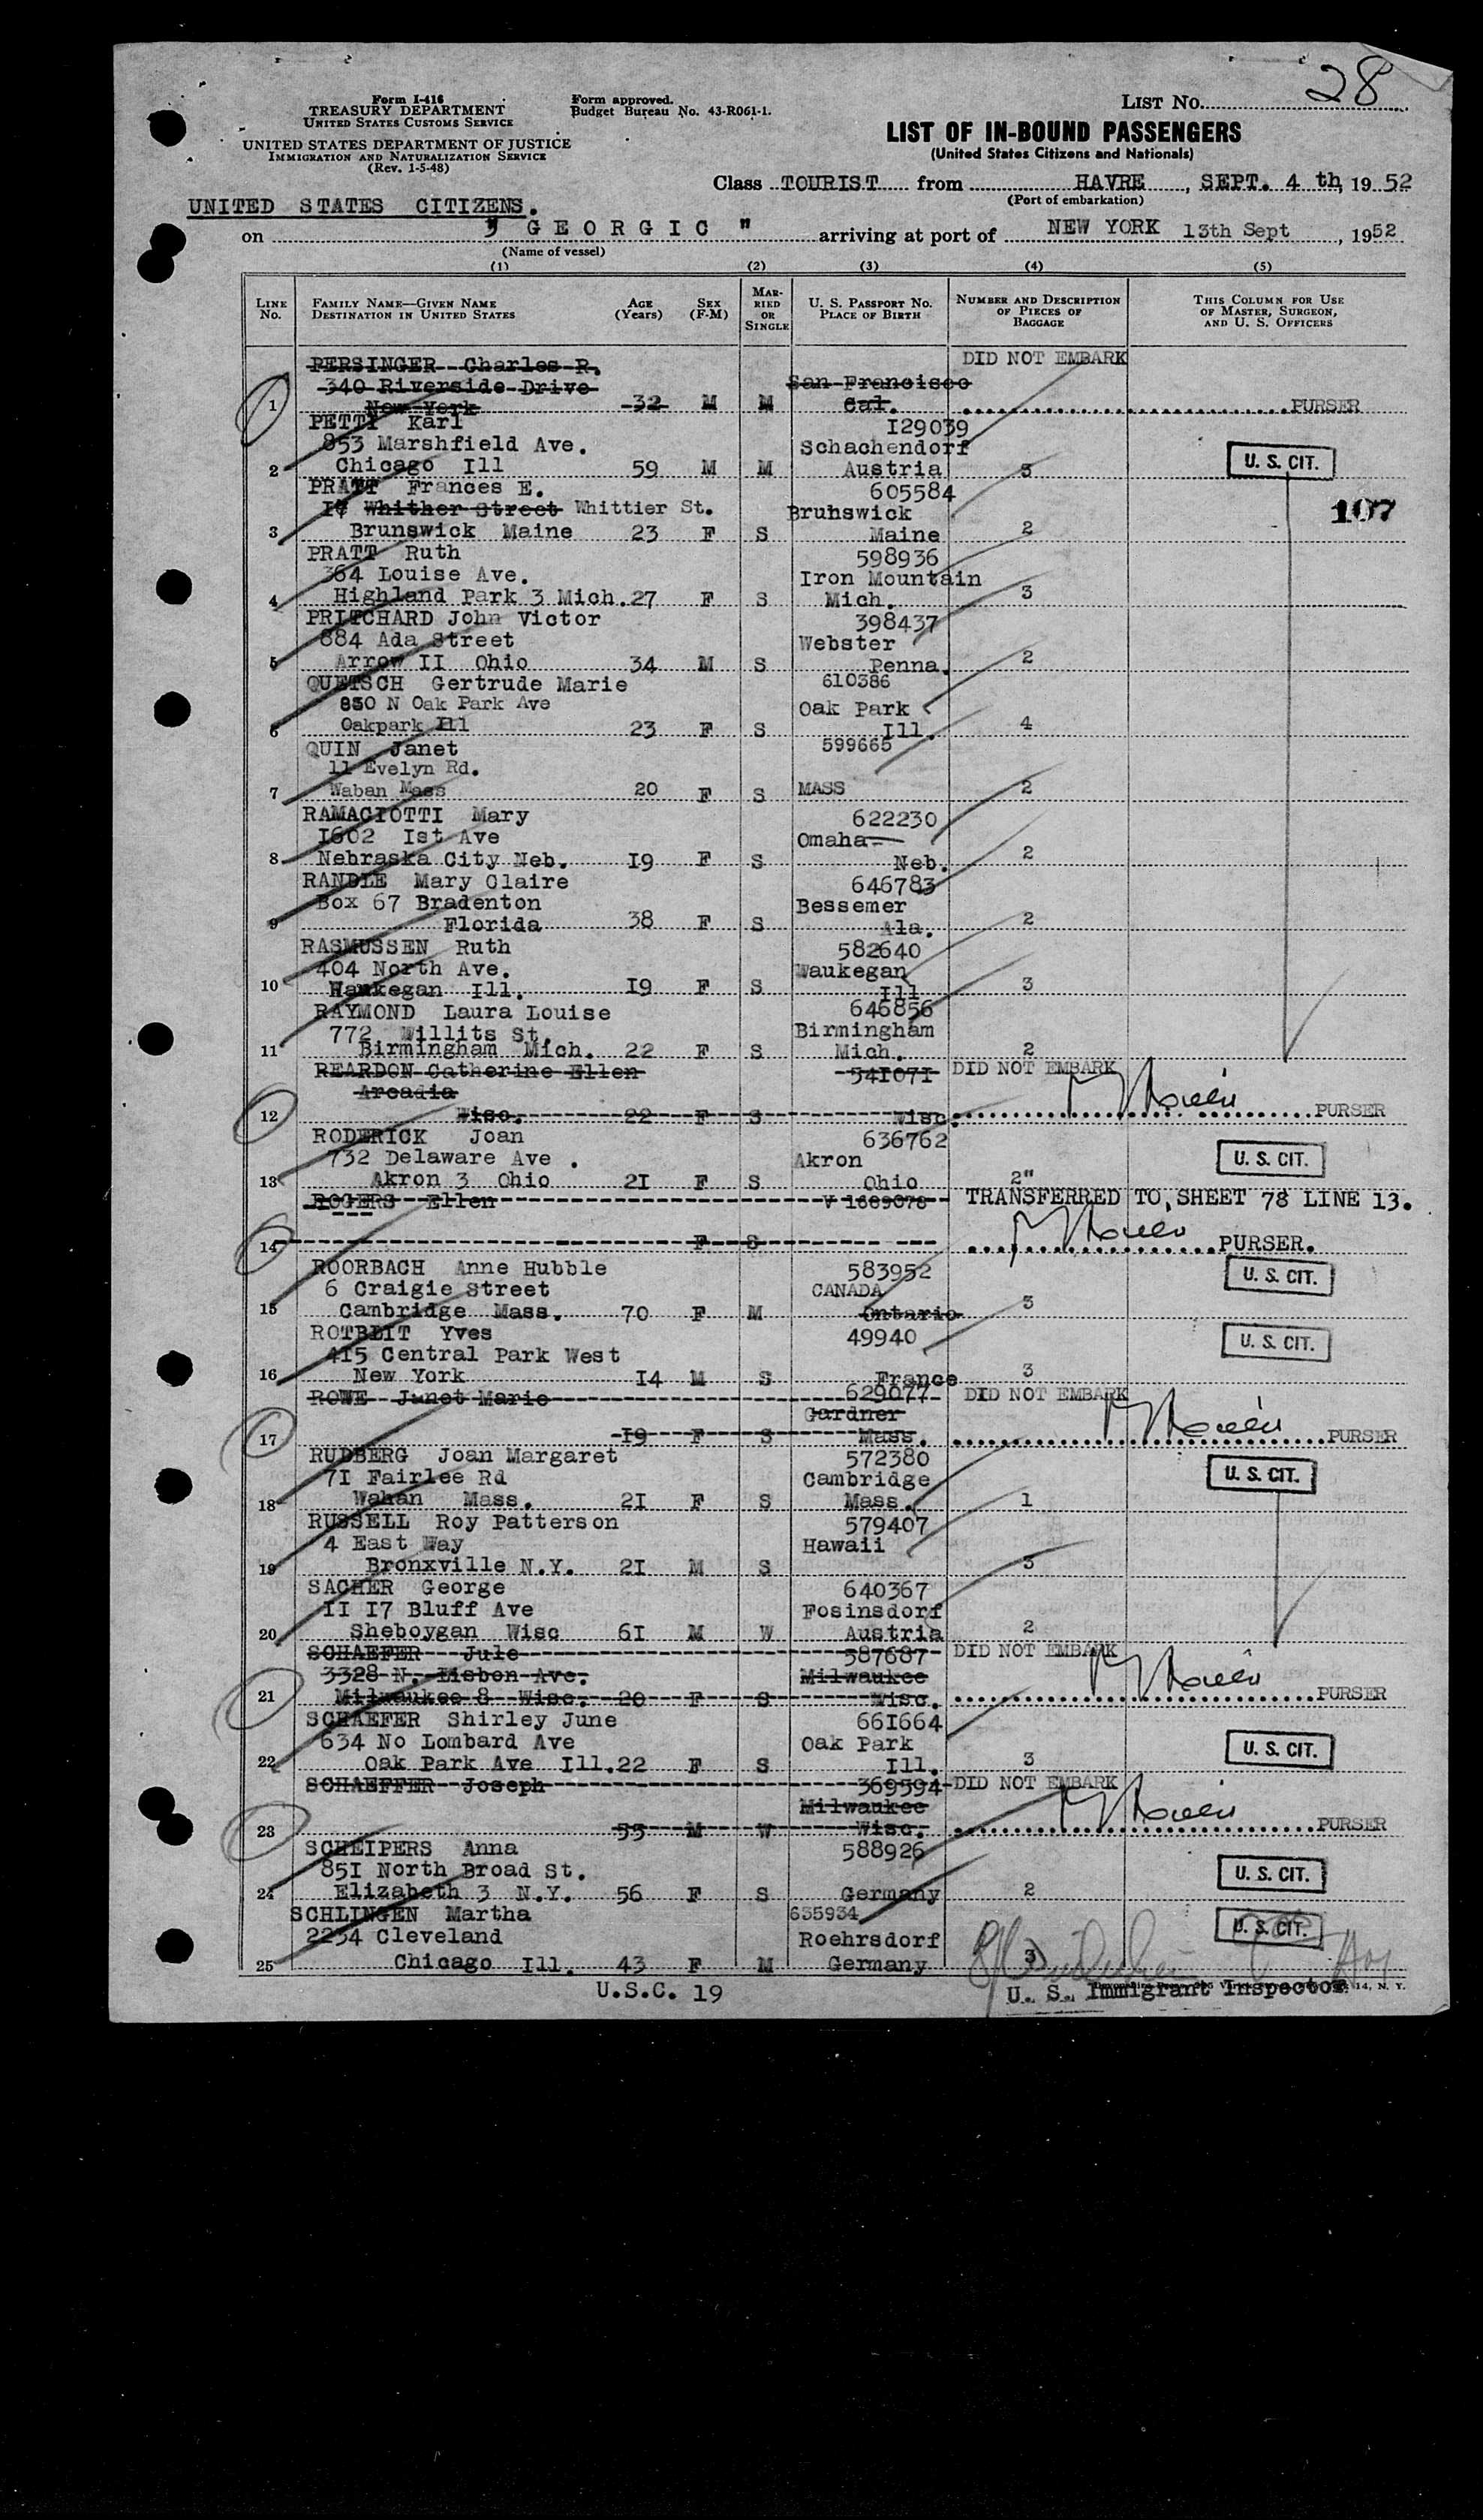 28
Form I-416
TREASURY DEPARTMENT
UNITED STATES CUSTOMS SERVICE
UNITED STATES DEPARTMENT OF JUSTICE
IMMIGRATION AND NATURALIZATION SERVICE
(Rev. 1-5-48)
Form approved.
Budget Bureau No. 43-R061-1.
LIST No.
LIST OF IN-BOUND PASSENGERS
(United States Citizens and Nationals)
Class TOURIST from HAVRE, SEPT. 4 th, 1952
(Port of embarkation)
UNITED STATES CITIZENS.
on " GEORGIC " arriving at port of NEW YORK 13th Sept, 1952
(Name of vessel)
(1) (2) (3) (4) (5)
LINE No. FAMILY NAME—GIVEN NAME DESTINATION IN UNITED STATES AGE (Years) SEX (F-M) MARRIED OR SINGLE U. S. PASSPORT NO. PLACE OF BIRTH NUMBER AND DESCRIPTION OF PIECES OF BAGGAGE THIS COLUMN FOR USE OF MASTER, SURGEON, AND U. S. OFFICERS
PERSINGER Charles R. DID NOT EMBARK
340 Riverside Drive San Francisco
1 New York 32 M M Cal. PURSER
PETTI Karl I29039
853 Marshfield Ave. Schachendorf
2 Chicago Ill 59 M M Austria 3 U. S. CIT.
PRATT Frances E. 605584
Whither Street Whittier St. Brunswick 107
3 Brunswick Maine 23 F S Maine 2
PRATT Ruth 598936
364 Louise Ave. Iron Mountain
4 Highland Park 3 Mich. 27 F S Mich. 3
PRITCHARD John Victor 398437
884 Ada Street Webster
5 Arrow II Ohio 34 M S Penna. 2
QUETSCH Gertrude Marie 610386
830 N Oak Park Ave Oak Park
6 Oakpark Ill 23 F S Ill. 4
QUIN Janet 599665
11 Evelyn Rd.
7 Waban Mass 20 F S MASS 2
RAMACIOTTI Mary 622230
I602 Ist Ave Omaha
8 Nebraska City Neb. I9 F S Neb. 2
RANDLE Mary Claire 646783
Box 67 Bradenton Bessemer
9 Florida 38 F S Ala. 2
RASMUSSEN Ruth 582640
404 North Ave. Waukegan
10 Waukegan Ill. I9 F S Ill 3
RAYMOND Laura Louise 646856
772 Willits St. Birmingham
11 Birmingham Mich. 22 F S Mich. 2
REARDON Catherine Ellen 54I07I DID NOT EMBARK
Arcadia
12 Wisc. 22 F S Wisc. PURSER
RODERICK Joan 636762
732 Delaware Ave . Akron U. S. CIT.
13 Akron 3 Ohio 2I F S Ohio 2"
ROGERS Ellen V 1689078 TRANSFERRED TO SHEET 78 LINE 13.
14 F S PURSER.
ROORBACH Anne Hubble 583952 U. S. CIT.
6 Craigie Street CANADA
15 Cambridge Mass. 70 F M Ontario 3
ROTBLIT Yves 49940 U. S. CIT.
4I5 Central Park West
16 New York I4 M S France 3
ROWE Janet Marie 629077 DID NOT EMBARK
Gardner
17 I9 F S Mass. PURSER
RUDBERG Joan Margaret 572380
7I Fairlee Rd Cambridge U. S. CIT.
18 Waban Mass. 2I F S Mass. 1
RUSSELL Roy Patterson 579407
4 East Way Hawaii
19 Bronxville N.Y. 2I M S 3
SACHER George 640367
II I7 Bluff Ave Fosinsdorf
20 Sheboygan Wisc 6I M W Austria 2
SCHAEFER Jule 587687 DID NOT EMBARK
3328 N. Lisbon Ave. Milwaukee
21 Milwaukee 8 Wisc. 20 F S Wisc. PURSER
SCHAEFER Shirley June 66I664
634 No Lombard Ave Oak Park U. S. CIT.
22 Oak Park Ave Ill. 22 F S Ill. 3
SCHAEFFER Joseph 369594 DID NOT EMBARK
Milwaukee
23 53 M W Wisc. PURSER
SCHEIPERS Anna 588926
85I North Broad St. U. S. CIT.
24 Elizabeth 3 N.Y. 56 F S Germany 2
SCHLINGEN Martha 635934
2234 Cleveland Roehrsdorf U. S. CIT.
25 Chicago Ill. 43 F M Germany 3
U.S.C. 19 U. S. Immigrant Inspector
14, N. Y.